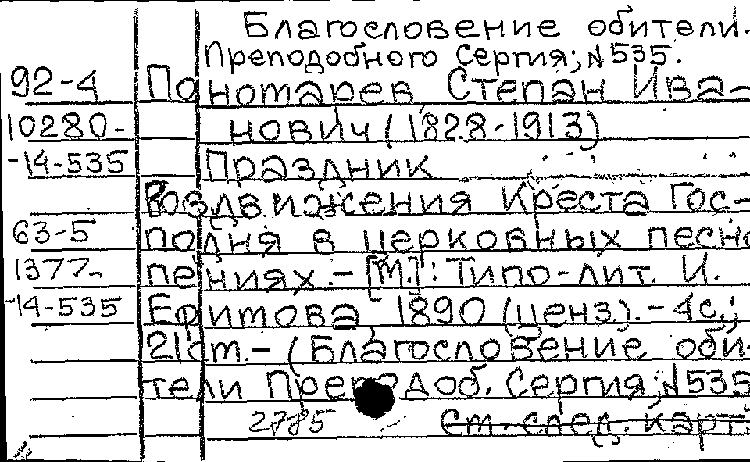 Благословение обители.
Преподобного Сергия; N535.
92-4 Пономарев Степан Ива-
10280- нович (1828-1913)
-14-535 Праздник
Воздвижения Креста Гос-
63-5 подня в церковных песно
1377- пениях. - [М.]: Типо-лит. И.
-14-535 Ефимова, 1890 (ценз). - 4с.;
21см. - (Благословение оби-
тели Преподоб. Сергия; N535
2785 См. след. карт.